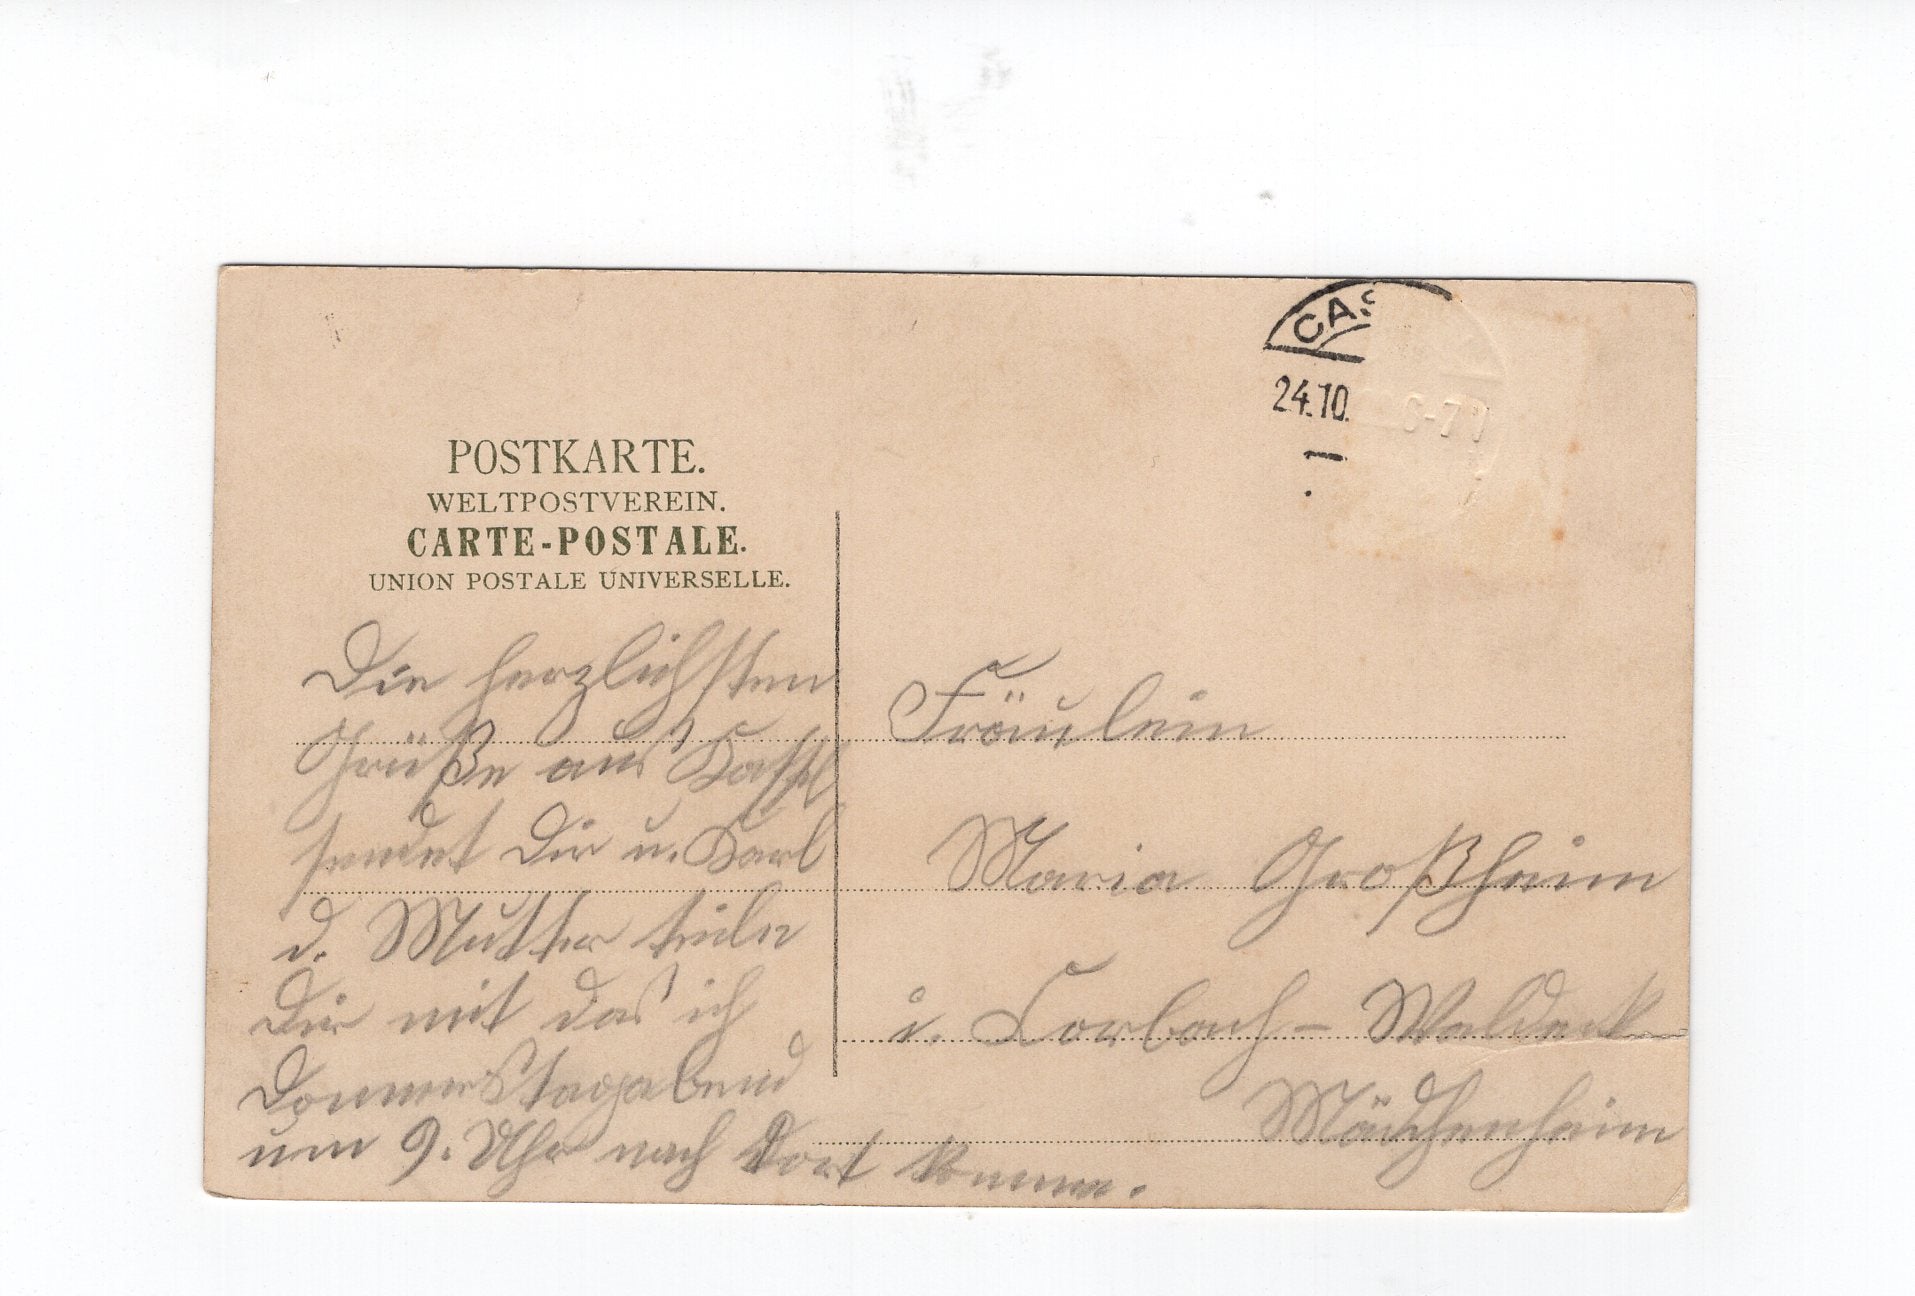 CAS
24.10. 6-7 N
POSTKARTE.
WELTPOSTVEREIN.
CARTE-POSTALE.
UNION POSTALE UNIVERSELLE.
Die herzlichsten
Grüße aus Kassel
sendet Dir u. Karl
d. Mutter teile
Dir mit das ich
Donnerstagabend
um 9. Uhr nach Dort komme.
Fräulein
Maria Großheim
i. Corbach - Waldeck
Mädchenheim